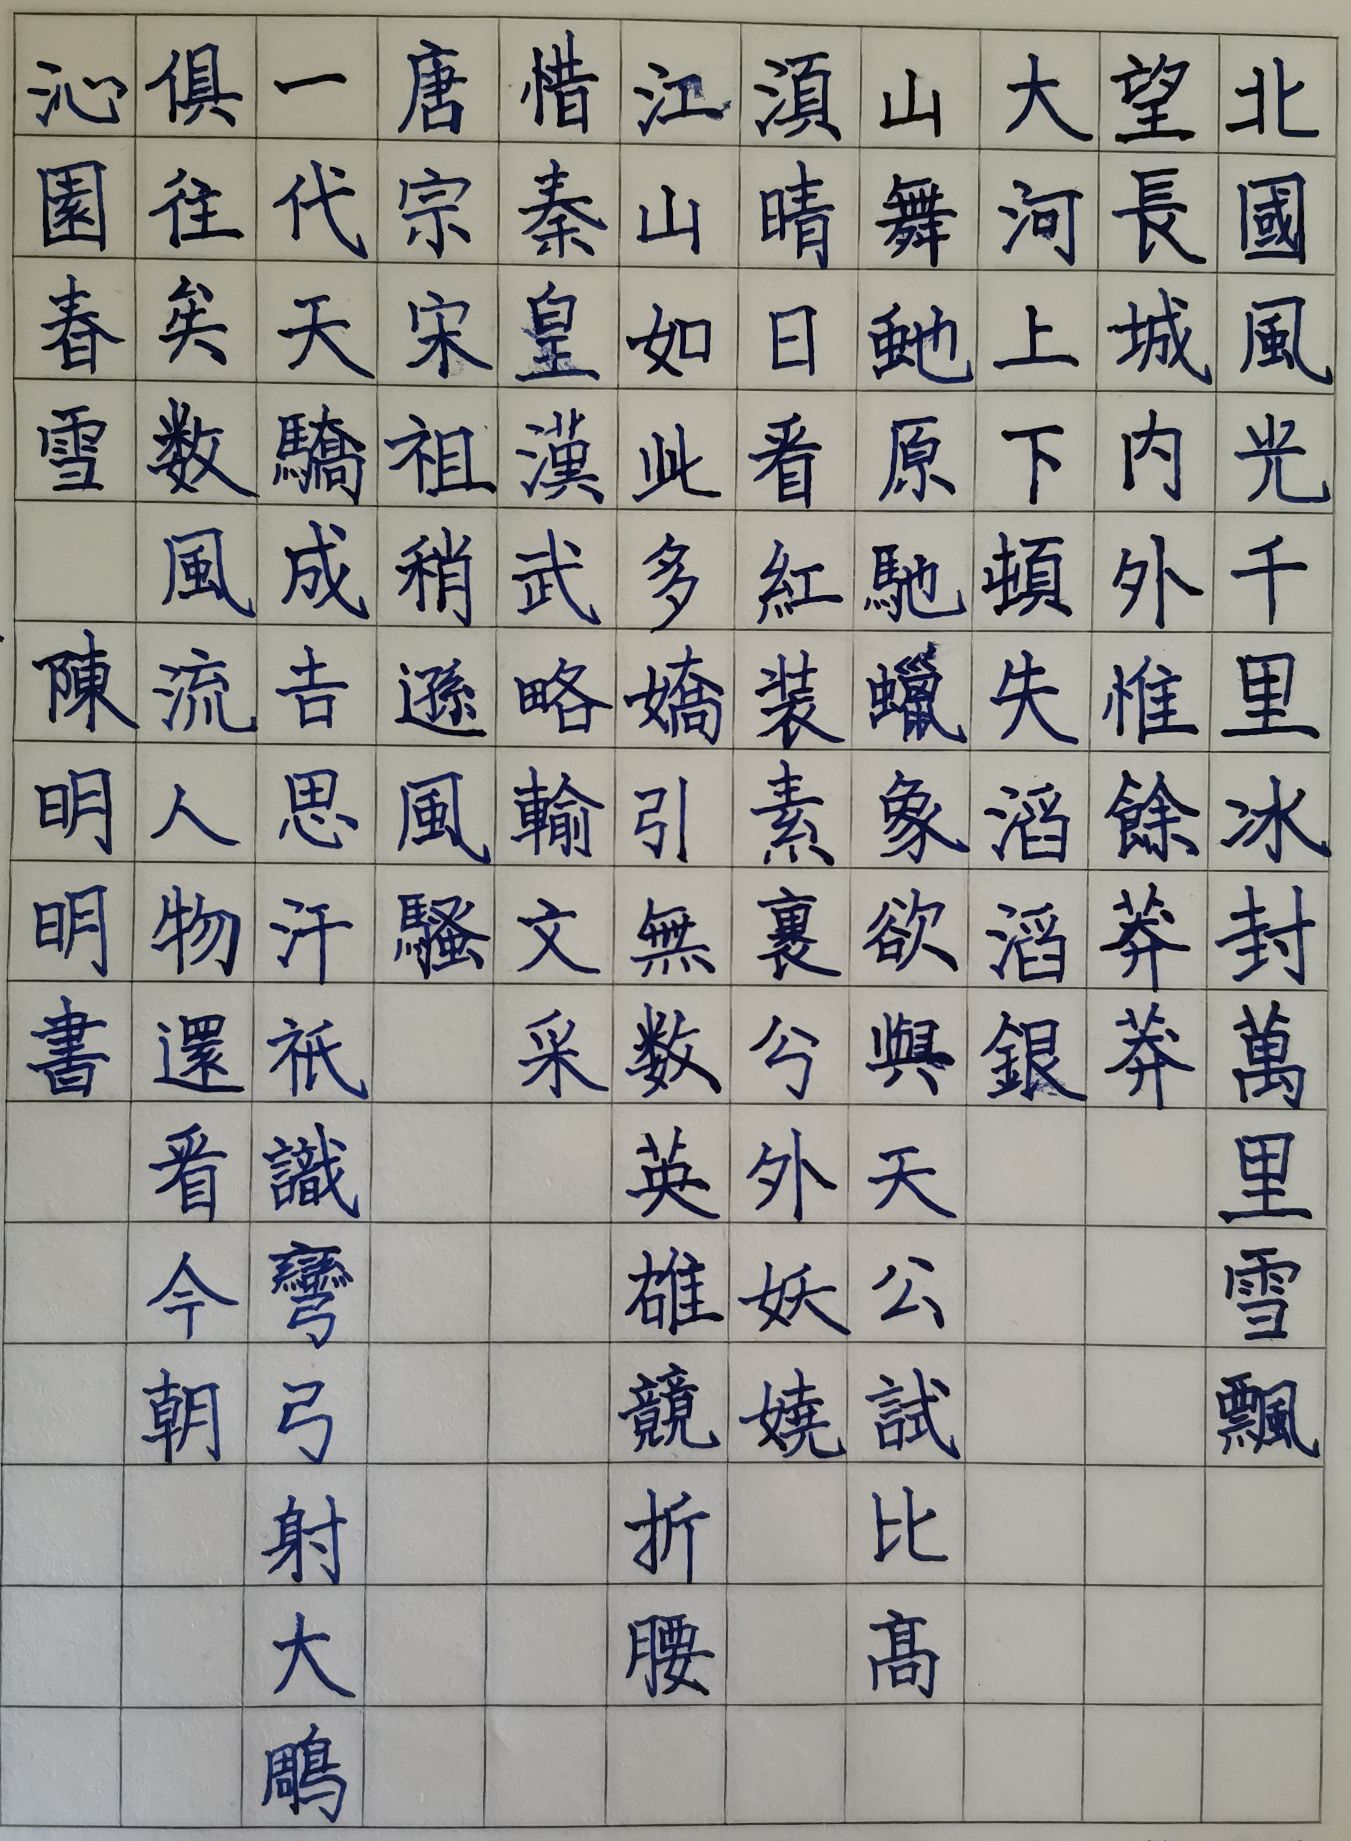 北國風光千里冰封萬里雪飄
望長城内外惟餘莽莽
大河上下頓失滔滔銀
山舞虵原馳蠟象欲與天公試比高
須晴日看紅装素裹兮外妖嬈
江山如此多嬌引無数英雄競折腰
惜秦皇漢武略輸文采
唐宗宋祖稍遜風騷
一代天驕成吉思汗祇識彎弓射大鵰
俱往矣数風流人物還看今朝
沁園春雪 陳明明書